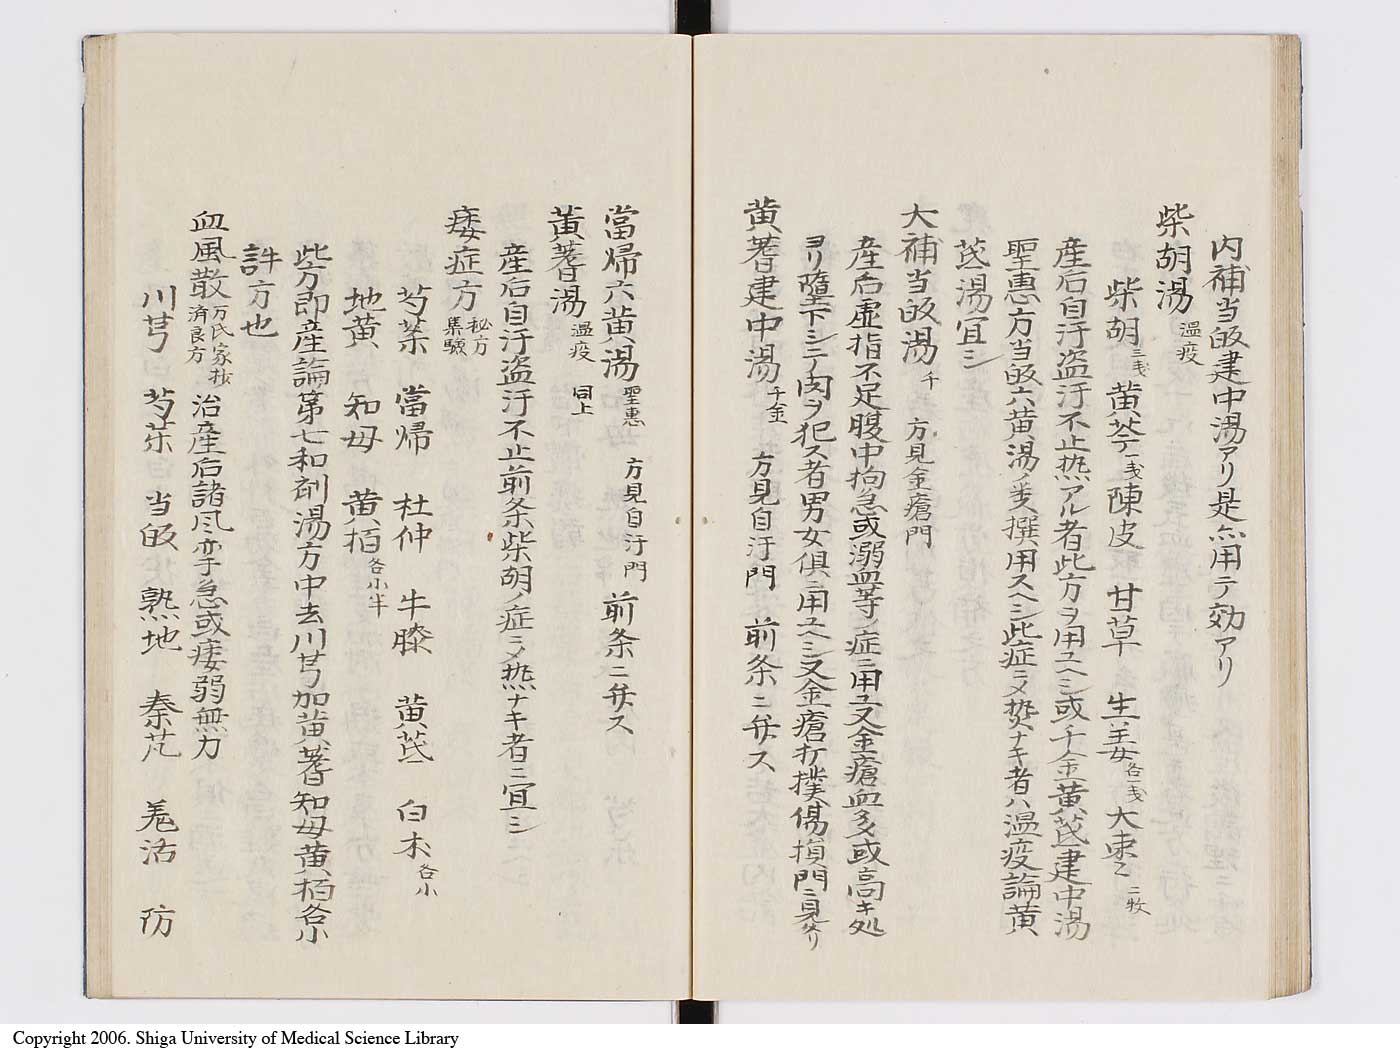 内補当皈建中湯アリ是亦用テ効アリ
柴胡湯 温疫
柴胡三戔 黄芩一戔 陳皮 甘草 生姜各一戔 大棗 二枚
産后自汗盗汗不止热アル者此方ヲ用ユヘシ或千金黄芪建中湯
聖惠方当皈六黄湯ノ类撰用スヘシ此症ニメ热ナキ者ハ温疫論黄
芪湯宜シ
大補当皈湯 千 方見金瘡門
産后虚損不足腹中拘急或溺血等ノ症ニ用ユ又金瘡血多或高キ処
ヨリ墮下シ肉ヲ犯ス者男女俱ニ用ユヘシ又金瘡打撲傷損門ニ見タリ
黄蓍建中湯 千金 方見自汗門 前条ニ弁ス
當帰六黄湯 聖惠 方見自汗門 前条ニ弁ス
黄蓍湯 温疫 同上
産后自汗盗汗不止前条柴胡症ニメ热ナキ者ニ宜シ
痿症方 秘方集驗
芍薬 當帰 杜仲 牛膝 黄芪 白朮各小
地黄 知母 黄栢各小半
此方即産論第七和剤湯方中去川芎加黄蓍知母黄栢各小
許方也
血風散 万氏家抄済良方 治産后諸风挛急或痿弱無力
川芎 芍薬 当皈 熟地 秦艽 羌活 防